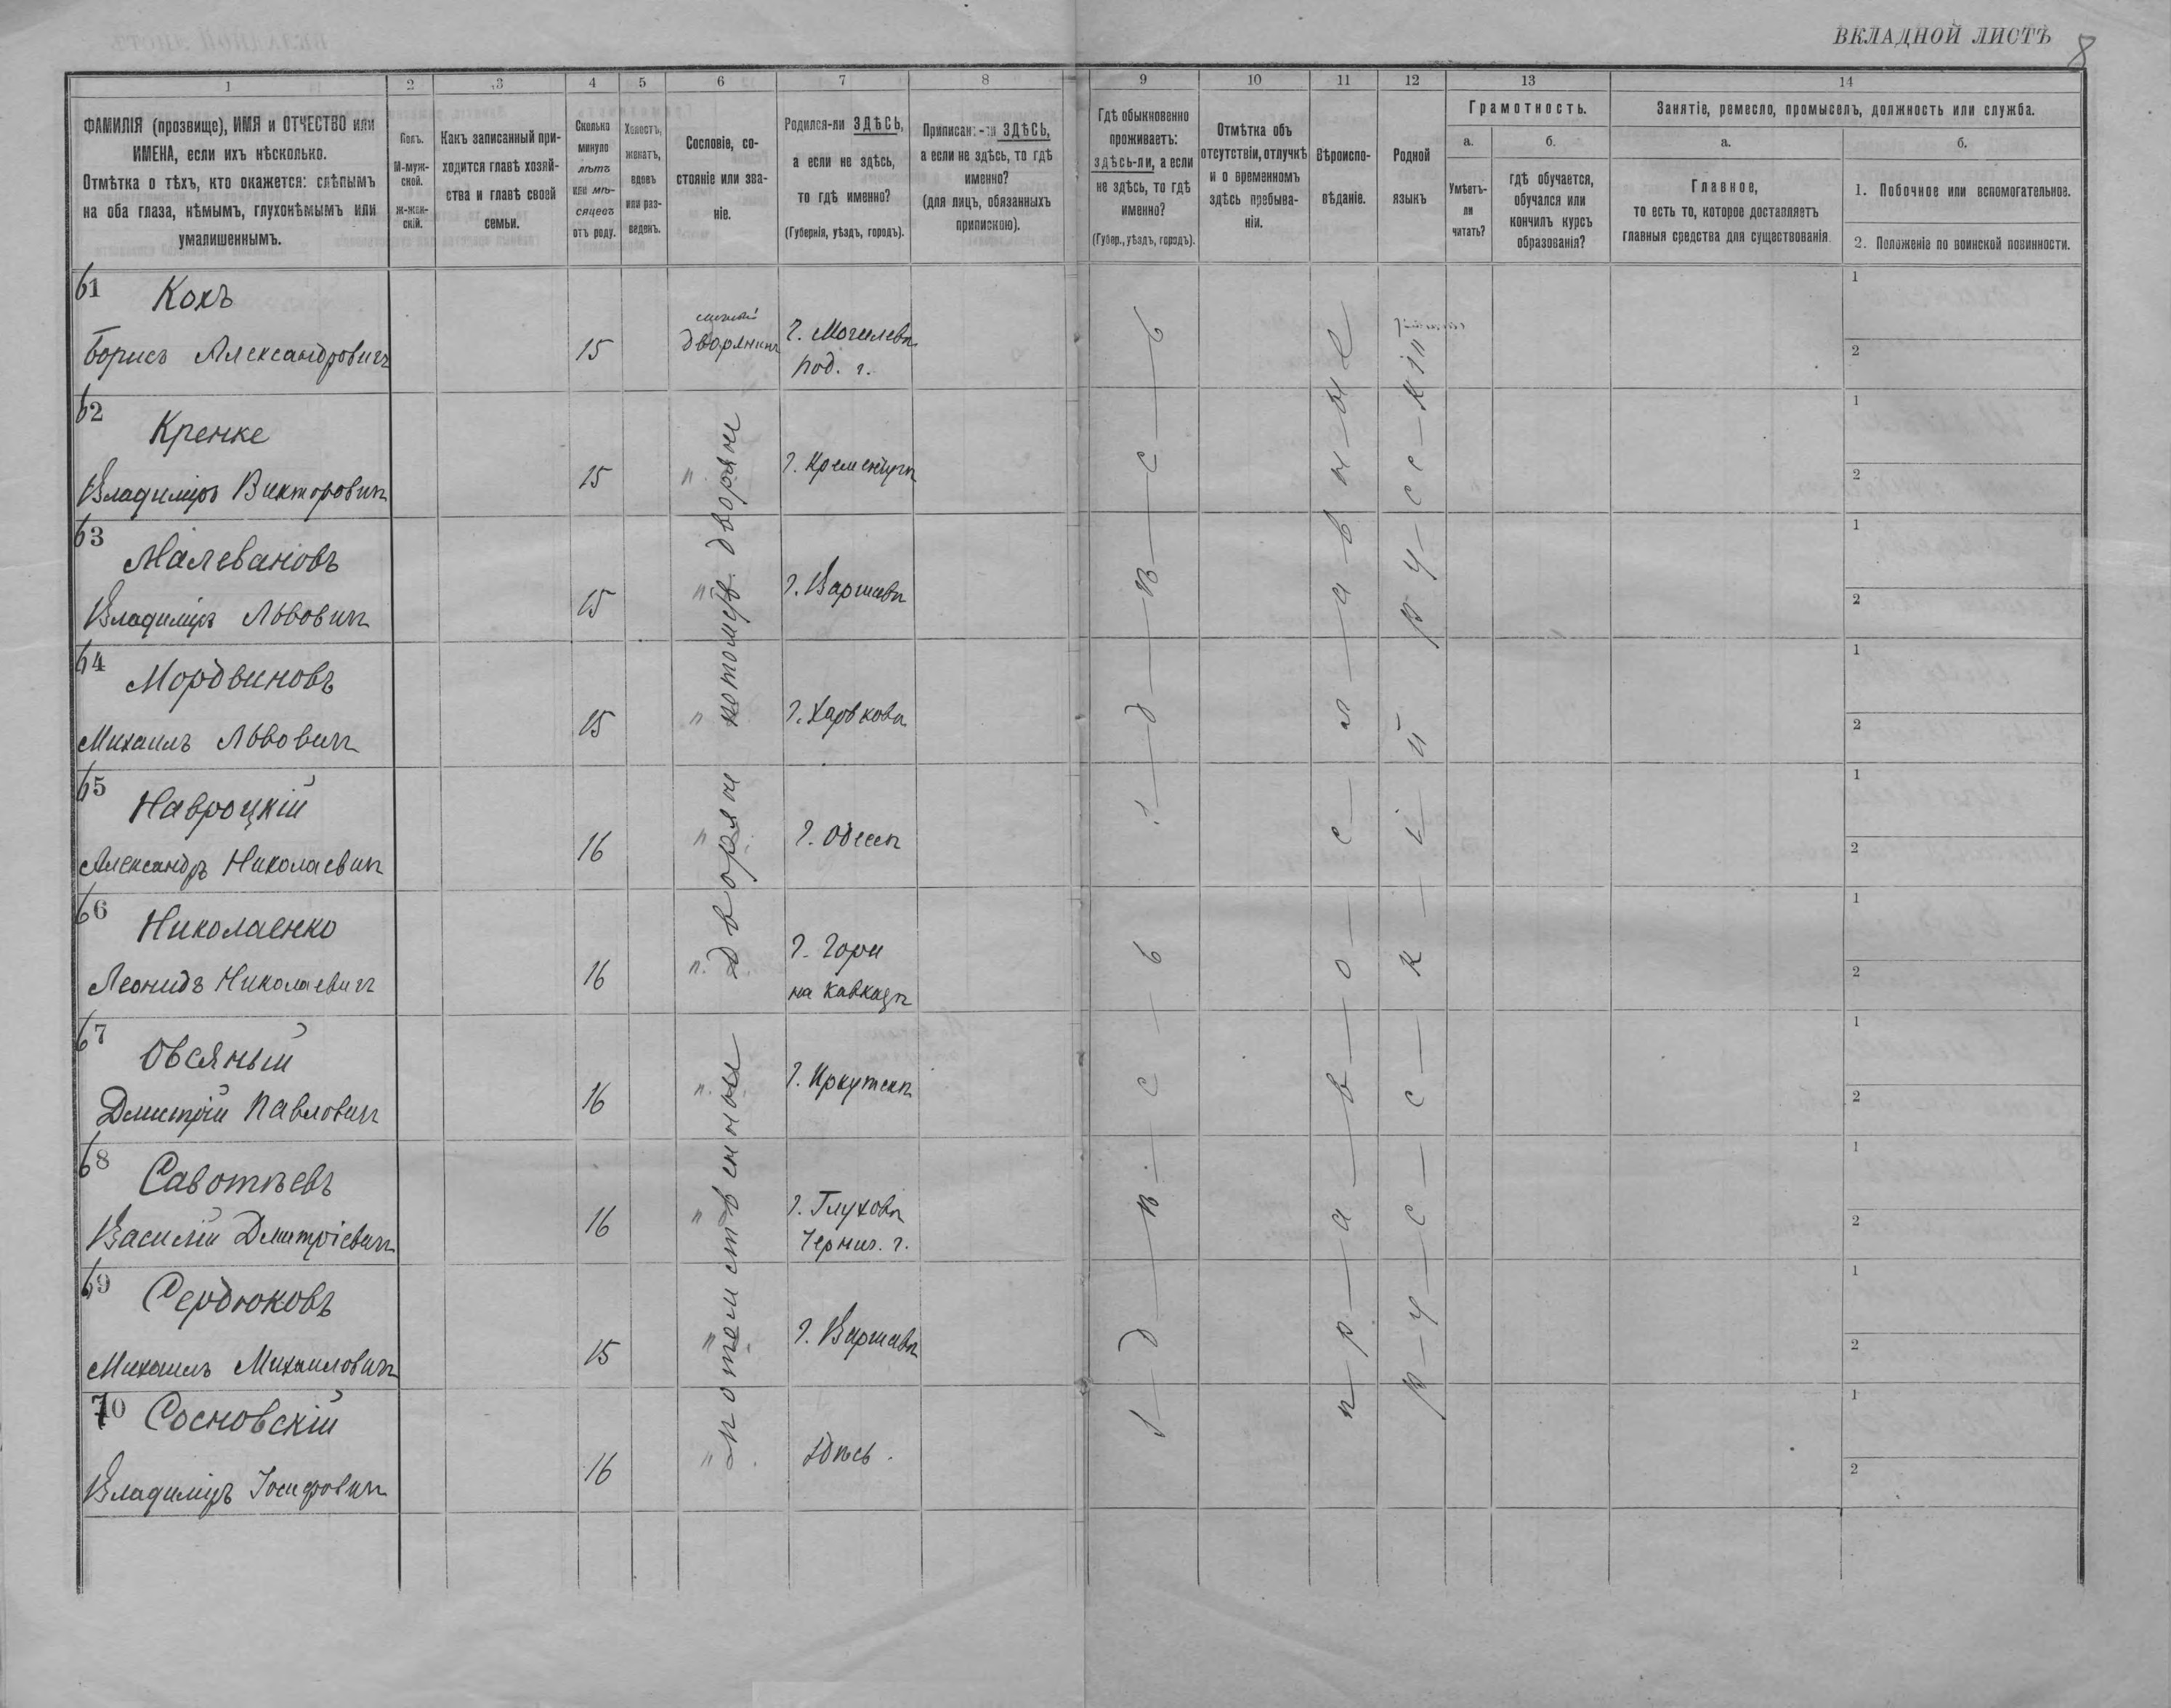 ВКЛАДНОЙ ЛИСТЪ
8
1 2 3 4 5 6 7 8 9 10 11 12 13 14
ФАМИЛІЯ (прозвище), ИМЯ и ОТЧЕСТВО или
ИМЕНА, если ихъ нѣсколько.
Отмѣтка о тѣхъ, кто окажется: слѣпымъ
на оба глаза, нѣмымъ, глухонѣмымъ или
умалишеннымъ.
Полъ.
М-муж-
ской.
Ж-жен-
скій.
Какъ записанный при-
ходится главѣ хозяй-
ства и главѣ своей
семьи.
Сколько
минуло
лѣтъ
или мѣ-
сяцевъ
отъ роду.
Холостъ,
женатъ,
вдовъ
или раз-
веденъ.
Сословіе, со-
стояніе или зва-
ніе.
Родился-ли ЗДѢСЬ,
а если не здѣсь,
то гдѣ именно?
(Губернія, уѣздъ, городъ).
Приписанъ-ли ЗДѢСЬ,
а если не здѣсь, то гдѣ
именно?
(для лицъ, обязанныхъ
припискою).
Гдѣ обыкновенно
проживаетъ:
здѣсь-ли, а если
не здѣсь, то гдѣ
именно?
(Губер., уѣздъ, городъ).
Отмѣтка объ
отсутствіи, отлучкѣ
и о временномъ
здѣсь пребыва-
ніи.
Вѣроиспо-
вѣданіе.
Родной
языкъ
Грамотность.
а.
Умѣетъ-
ли
читать?
б.
гдѣ обучается,
обучался или
кончилъ курсъ
образованія?
Занятіе, ремесло, промыселъ, должность или служба.
а.
Главное,
то есть то, которое доставляетъ
главныя средства для существованія
б.
1. Побочное или вспомогательное.
2. Положеніе по воинской повинности.
61 Кохъ
Борисъ Александровичъ
15
дворянинъ
г. Могилевѣ
под. г.
1
2
62 Кренке
Владиміръ Викторовичъ
15
"
г. Кременчугѣ
1
2
63 Малевановъ
Владиміръ Львовичъ
15
"
г. Варшавѣ
1
2
64 Мордвиновъ
Михаилъ Львовичъ
15
"
г. Харьковѣ
1
2
65 Навроцкій
Александръ Николаевичъ
16
"
г. Одессѣ
1
2
66 Николаенко
Леонидъ Николаевичъ
16
"
г. Гори
на Кавказѣ
1
2
67 Овсяный
Дмитрій Павловичъ
16
"
г. Иркутскѣ
1
2
68 Савотѣевъ
Василій Дмитріевичъ
16
"
г. Глуховѣ
Черниг. г.
1
2
69 Сердюковъ
Михаилъ Михаиловичъ
15
"
г. Варшавѣ
1
2
70 Сосновскій
Владиміръ Іосифовичъ
16
"
Здѣсь.
1
2
потомственные дворяне
потомств. дворяне
здѣсь
здѣсь
православные
русскій
русскій